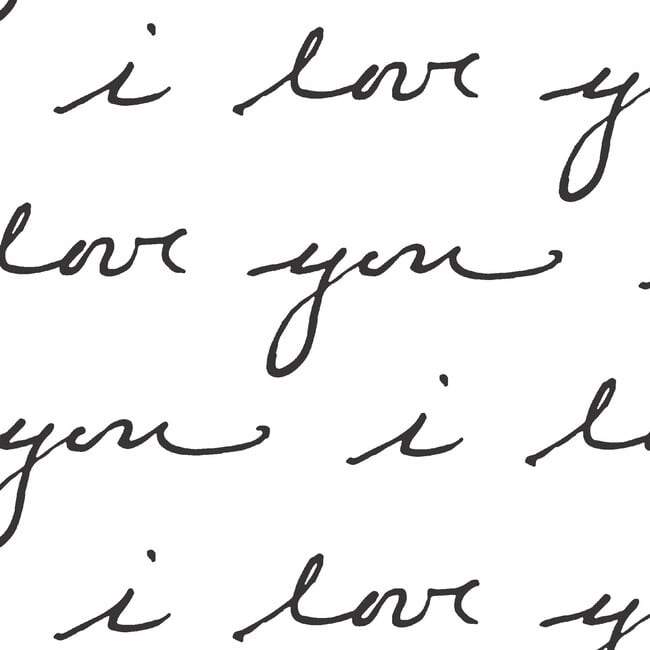 i love y
love you
you i lo
i love y